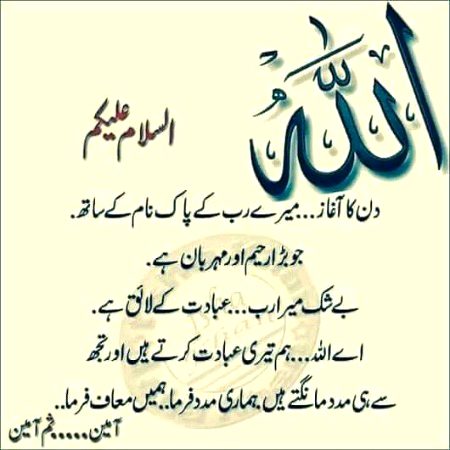 اللہ
السلام علیکم
دن کا آغاز...میرے رب کے پاک نام کے ساتھ.
جو بڑا رحیم اور مہربان ہے.
بے شک میرا رب...عبادت کے لائق ہے.
اے اللہ...ہم تیری عبادت کرتے ہیں اور تجھ
سے ہی مدد مانگتے ہیں.ہماری مدد فرما..ہمیں معاف فرما..
آمین.....ثم آمین